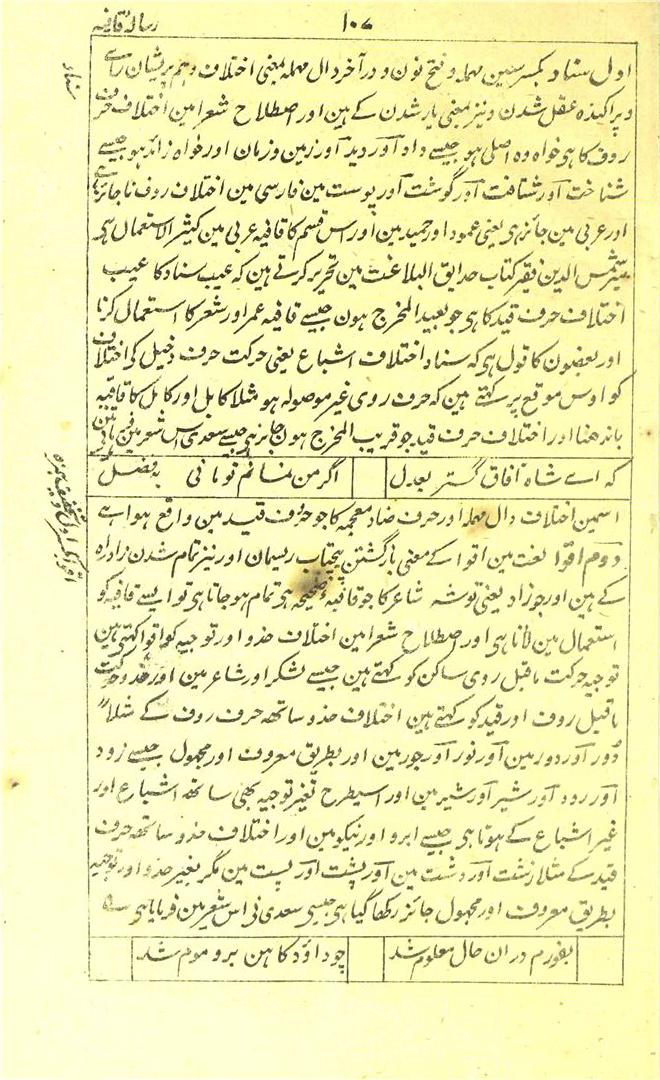 رسالہ قافیہ
۱۰۷
سناد
اول سناد بکسر سین مہملہ و فتح نون و در آخر دال مہملہ بمعنی اختلاف و ہم پریشان رائے
و پراکندہ عقل شدن و نیز بمعنی یار شدن کے ہین اور اصطلاح شعرا مین اختلاف حرف
روف کا ہی خواہ وہ اصلی ہو جیسے داد آور دید آور زمین و زمان اور خواہ زائد ہو جیسے
شناخت آور شتافت آور گوشت آور پوست مین فارسی مین اختلاف روف ناجائز ہے
اور عربی مین جائز ہی یعنی عمود اور حمید مین اور اس قسم کا قافیہ عربی مین کثیر الاستعمال ہی
میر شمس الدین فقیر کتاب حدایق البلاغت مین تحریر کرتے ہین کہ عیب سناد کا عیب
اختلاف حرف قید کا ہی جو بعید المخرج ہون جیسے قافیہ عمر اور شعر کا استعمال کرنا
اور بعضون کا قول ہی کہ سناد اختلاف اشباع یعنی حرکت حرف دخیل کی اختلاف
کو اوس موقع پر کہتے ہین کہ حرف روی غیر موصولہ ہو مثلا کابل اور کابل کا قافیہ
باندھنا اور اختلاف حرف قید جو قریب المخرج ہون جائز ہی جیسے سعدی اس شعر مین فرماتے ہین
کہ اے شاہ آفاق گستر بعدل
اگر من نمانم تو مانی بفضل
اسمین اختلاف دال مہملہ اور حرف ضاد معجمہ کا جو حروف قید مین واقع ہوا ہے
دوم اقوا لغت مین اقوا کے معنی بازگشتن پیچتاب ریسمان اور نیز تمام شدن زاد راہ
کے ہین اور جو زاد یعنی توشہ شاعر کا جو قافیہ صحیحہ ہی تمام ہو جاتا ہی تو ایسے قافیہ کو
استعمال مین لاتا ہی اور اصطلاح شعرا مین اختلاف حذو اور توجیہ کو اقوا کہتے ہین
توجیہ حرکت ماقبل روی ساکن کو کہتے ہین جیسے لشکر اور شاعر مین اور حذو حرکت
ماقبل روف اور قید کو کہتے ہین اختلاف حذو ساتھ حرف روف کے مثلا
دُور آور دَور مین آور نور آور جور مین اور بطریق معروف اور مجہول جیسے زود
آور رود آور شیر آور شیر مین اور اسیطرح تغیر توجیہ بھی ساتھ اشباع اور
غیر اشباع کے ہوتا ہی جیسے ابرو اور نیکو مین اور اختلاف حذو ساتھ حرف
قید کے مثلا زشت آور دشت مین آور پشت آور پست مین مگر تغیر حذو اور توجیہ
بطریق معروف اور مجہول جائز رکھا گیا ہی جیسی سعدی نی اس شعر مین فرمایا ہی ے
بفورم در ان حال معلوم شد
چو داؤد کاہن برو موم شد